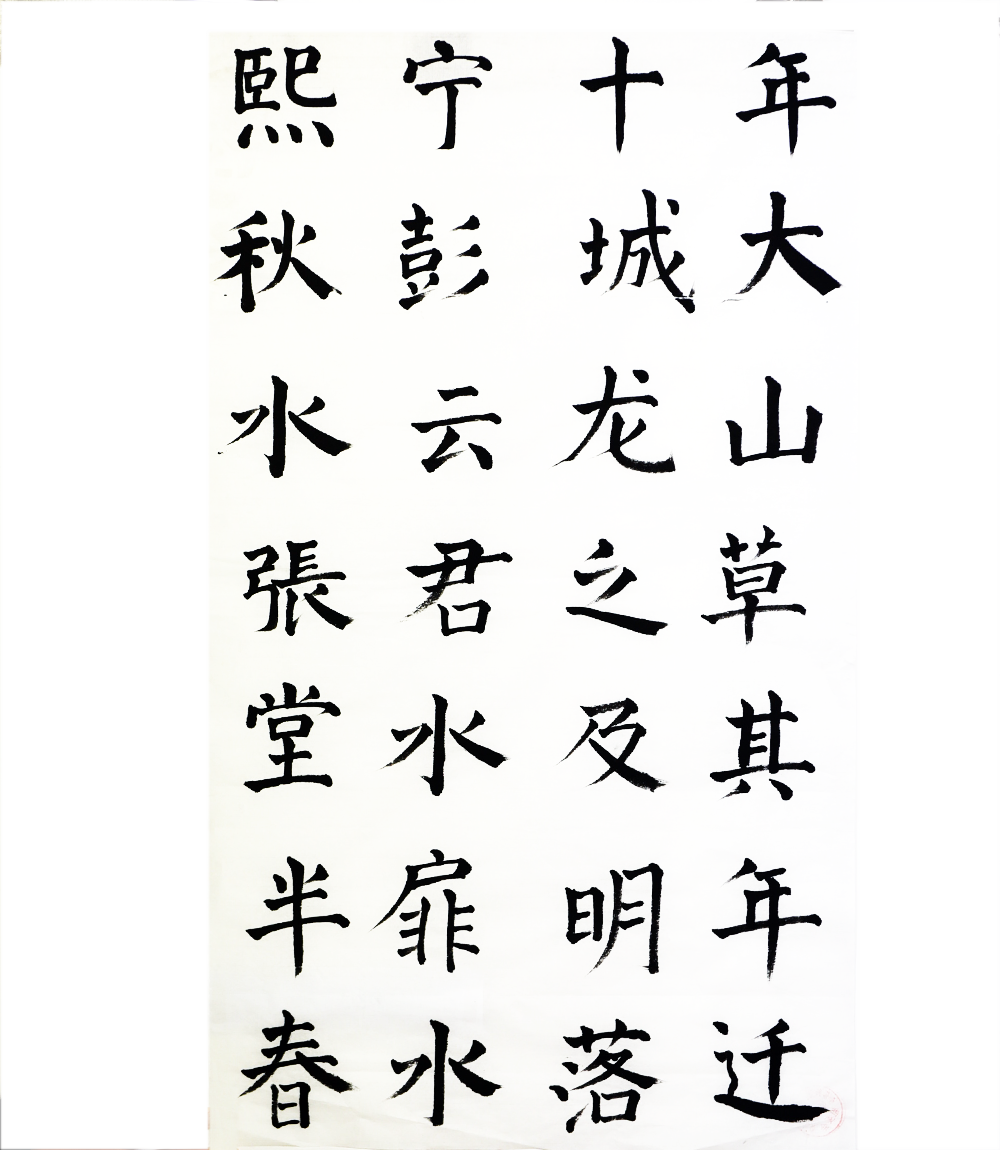 熙宁十年
秋彭城大
水云龙山
張君之草
堂水及其
半扉明年
春水落迁